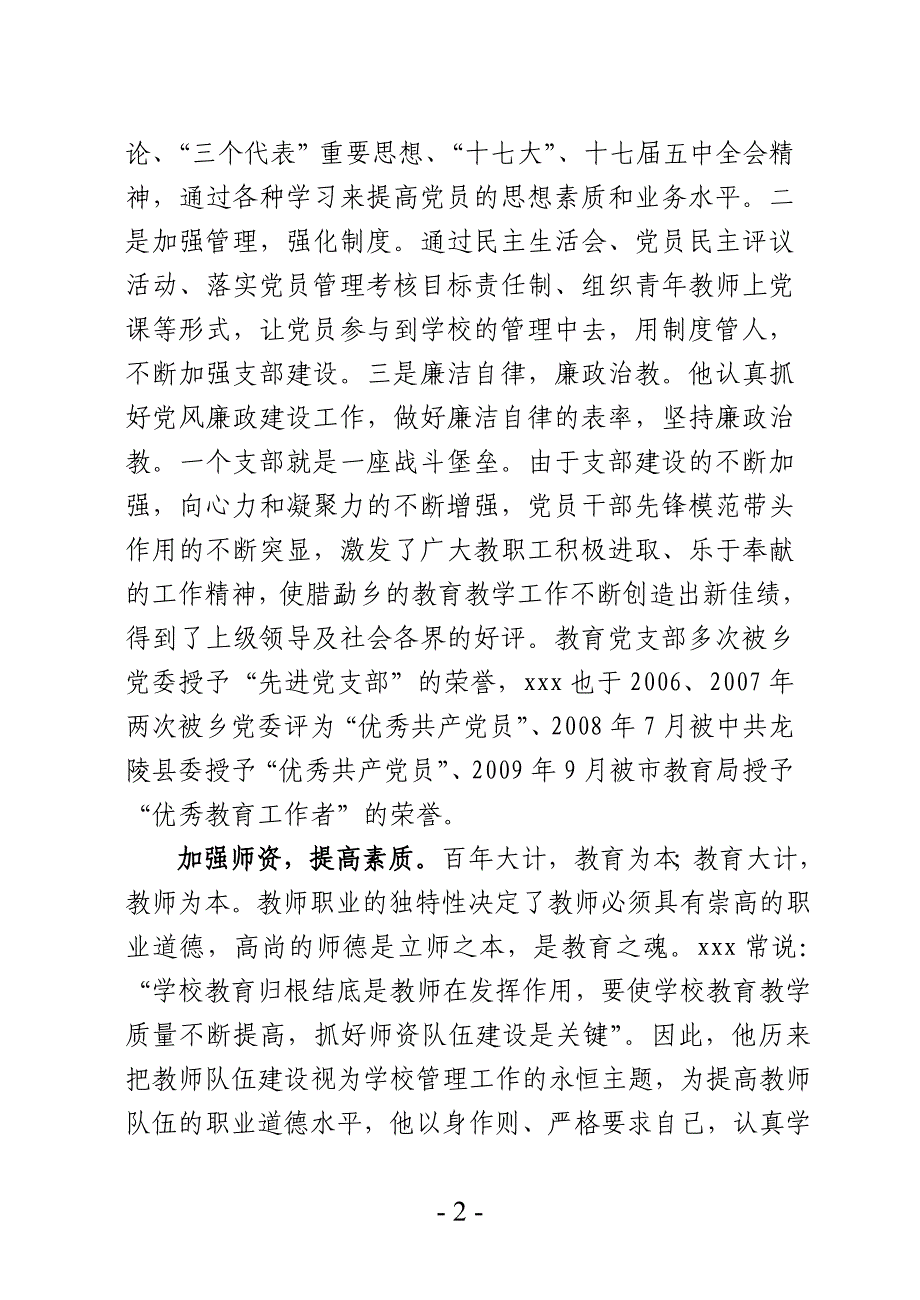 论、“三个代表”重要思想、“十七大”、十七届五中全会精
神，通过各种学习来提高党员的思想素质和业务水平。二
是加强管理，强化制度。通过民主生活会、党员民主评议
活动、落实党员管理考核目标责任制、组织青年教师上党
课等形式，让党员参与到学校的管理中去，用制度管人，
不断加强支部建设。三是廉洁自律，廉政治教。他认真抓
好党风廉政建设工作，做好廉洁自律的表率，坚持廉政治
教。一个支部就是一座战斗堡垒。由于支部建设的不断加
强，向心力和凝聚力的不断增强，党员干部先锋模范带头
作用的不断突显，激发了广大教职工积极进取、乐于奉献
的工作精神，使腊勐乡的教育教学工作不断创造出新佳绩，
得到了上级领导及社会各界的好评。教育党支部多次被乡
党委授予“先进党支部”的荣誉，xxx 也于 2006、2007 年
两次被乡党委评为“优秀共产党员”、2008 年 7 月被中共龙
陵县委授予“优秀共产党员”、2009 年 9 月被市教育局授予
“优秀教育工作者”的荣誉。
加强师资，提高素质。百年大计，教育为本；教育大计，
教师为本。教师职业的独特性决定了教师必须具有崇高的职
业道德，高尚的师德是立师之本，是教育之魂。xxx 常说：
“学校教育归根结底是教师在发挥作用，要使学校教育教学
质量不断提高，抓好师资队伍建设是关键”。因此，他历来
把教师队伍建设视为学校管理工作的永恒主题，为提高教师
队伍的职业道德水平，他以身作则、严格要求自己，认真学
- 2 -